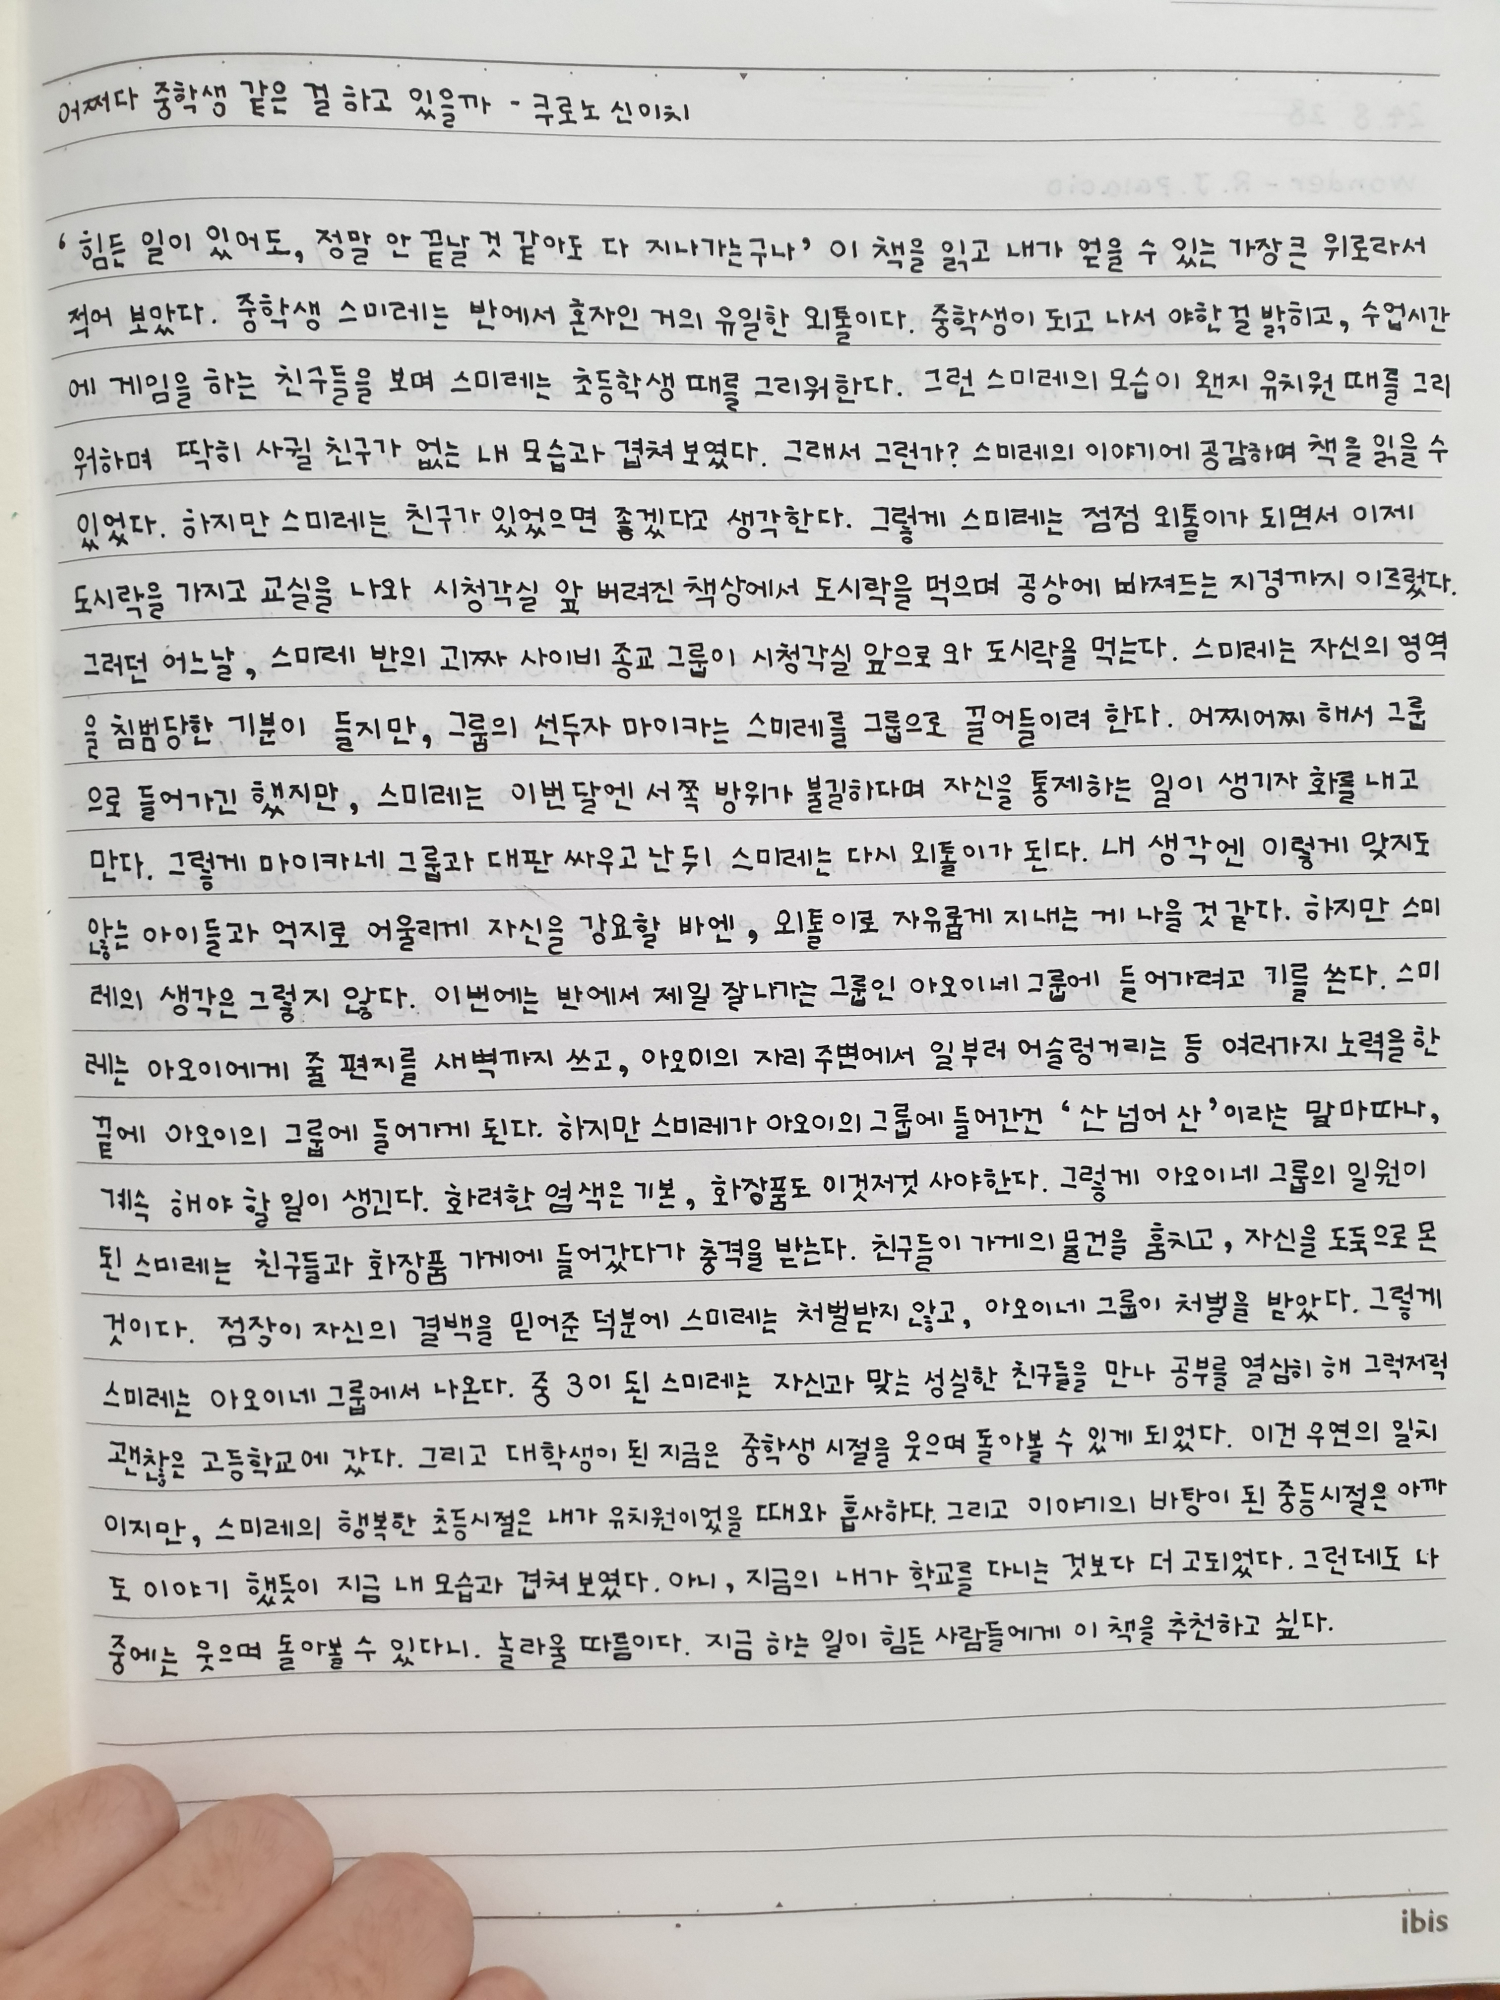 어쩌다 중학생 같은 걸 하고 있을까 - 쿠로노 신이치
‘힘든 일이 있어도, 정말 안 끝날 것 같아도 다 지나가는구나’ 이 책을 읽고 내가 얻을 수 있는 가장 큰 위로라서
적어 보았다. 중학생 스미레는 반에서 혼자인 거의 유일한 외톨이다. 중학생이 되고 나서 야한 걸 밝히고, 수업시간
에 게임을 하는 친구들을 보며 스미레는 초등학생 때를 그리워한다. 그런 스미레의 모습이 왠지 유치원 때를 그리
워하며 딱히 사귈 친구가 없는 내 모습과 겹쳐 보였다. 그래서 그런가? 스미레의 이야기에 공감하며 책을 읽을 수
있었다. 하지만 스미레는 친구가 있었으면 좋겠다고 생각한다. 그렇게 스미레는 점점 외톨이가 되면서 이제
도시락을 가지고 교실을 나와 시청각실 앞 버려진 책상에서 도시락을 먹으며 공상에 빠져드는 지경까지 이르렀다.
그러던 어느날, 스미레 반의 괴짜 사이비 종교 그룹이 시청각실 앞으로 와 도시락을 먹는다. 스미레는 자신의 영역
을 침범당한 기분이 들지만, 그룹의 선두자 마이카는 스미레를 그룹으로 끌어들이려 한다. 어찌어찌 해서 그룹
으로 들어가긴 했지만, 스미레는 이번 달엔 서쪽 방위가 불길하다며 자신을 통제하는 일이 생기자 화를 내고
만다. 그렇게 마이카네 그룹과 대판 싸우고 난 뒤 스미레는 다시 외톨이가 된다. 내 생각엔 이렇게 맞지도
않는 아이들과 억지로 어울리게 자신을 강요할 바엔, 외톨이로 자유롭게 지내는 게 나을 것 같다. 하지만 스미
레의 생각은 그렇지 않다. 이번에는 반에서 제일 잘나가는 그룹인 아오이네 그룹에 들어가려고 기를 쓴다. 스미
레는 아오이에게 줄 편지를 새벽까지 쓰고, 아오이의 자리 주변에서 일부러 어슬렁거리는 등 여러가지 노력을 한
끝에 아오이의 그룹에 들어가게 된다. 하지만 스미레가 아오이의 그룹에 들어간건 ‘산 넘어 산’이라는 말마따나,
계속 해야 할 일이 생긴다. 화려한 염색은 기본, 화장품도 이것저것 사야한다. 그렇게 아오이네 그룹의 일원이
된 스미레는 친구들과 화장품 가게에 들어갔다가 충격을 받는다. 친구들이 가게의 물건을 훔치고, 자신을 도둑으로 몬
것이다. 점장이 자신의 결백을 믿어준 덕분에 스미레는 처벌받지 않고, 아오이네 그룹이 처벌을 받았다. 그렇게
스미레는 아오이네 그룹에서 나온다. 중 3이 된 스미레는 자신과 맞는 성실한 친구들을 만나 공부를 열심히 해 그럭저럭
괜찮은 고등학교에 갔다. 그리고 대학생이 된 지금은 중학생 시절을 웃으며 돌아볼 수 있게 되었다. 이건 우연의 일치
이지만, 스미레의 행복한 초등시절은 내가 유치원이었을 때와 흡사하다. 그리고 이야기의 바탕이 된 중등시절은 아까
도 이야기 했듯이 지금 내 모습과 겹쳐 보였다. 아니, 지금의 내가 학교를 다니는 것보다 더 고되었다. 그런데도 나
중에는 웃으며 돌아볼 수 있다니. 놀라울 따름이다. 지금 하는 일이 힘든 사람들에게 이 책을 추천하고 싶다.
ibis